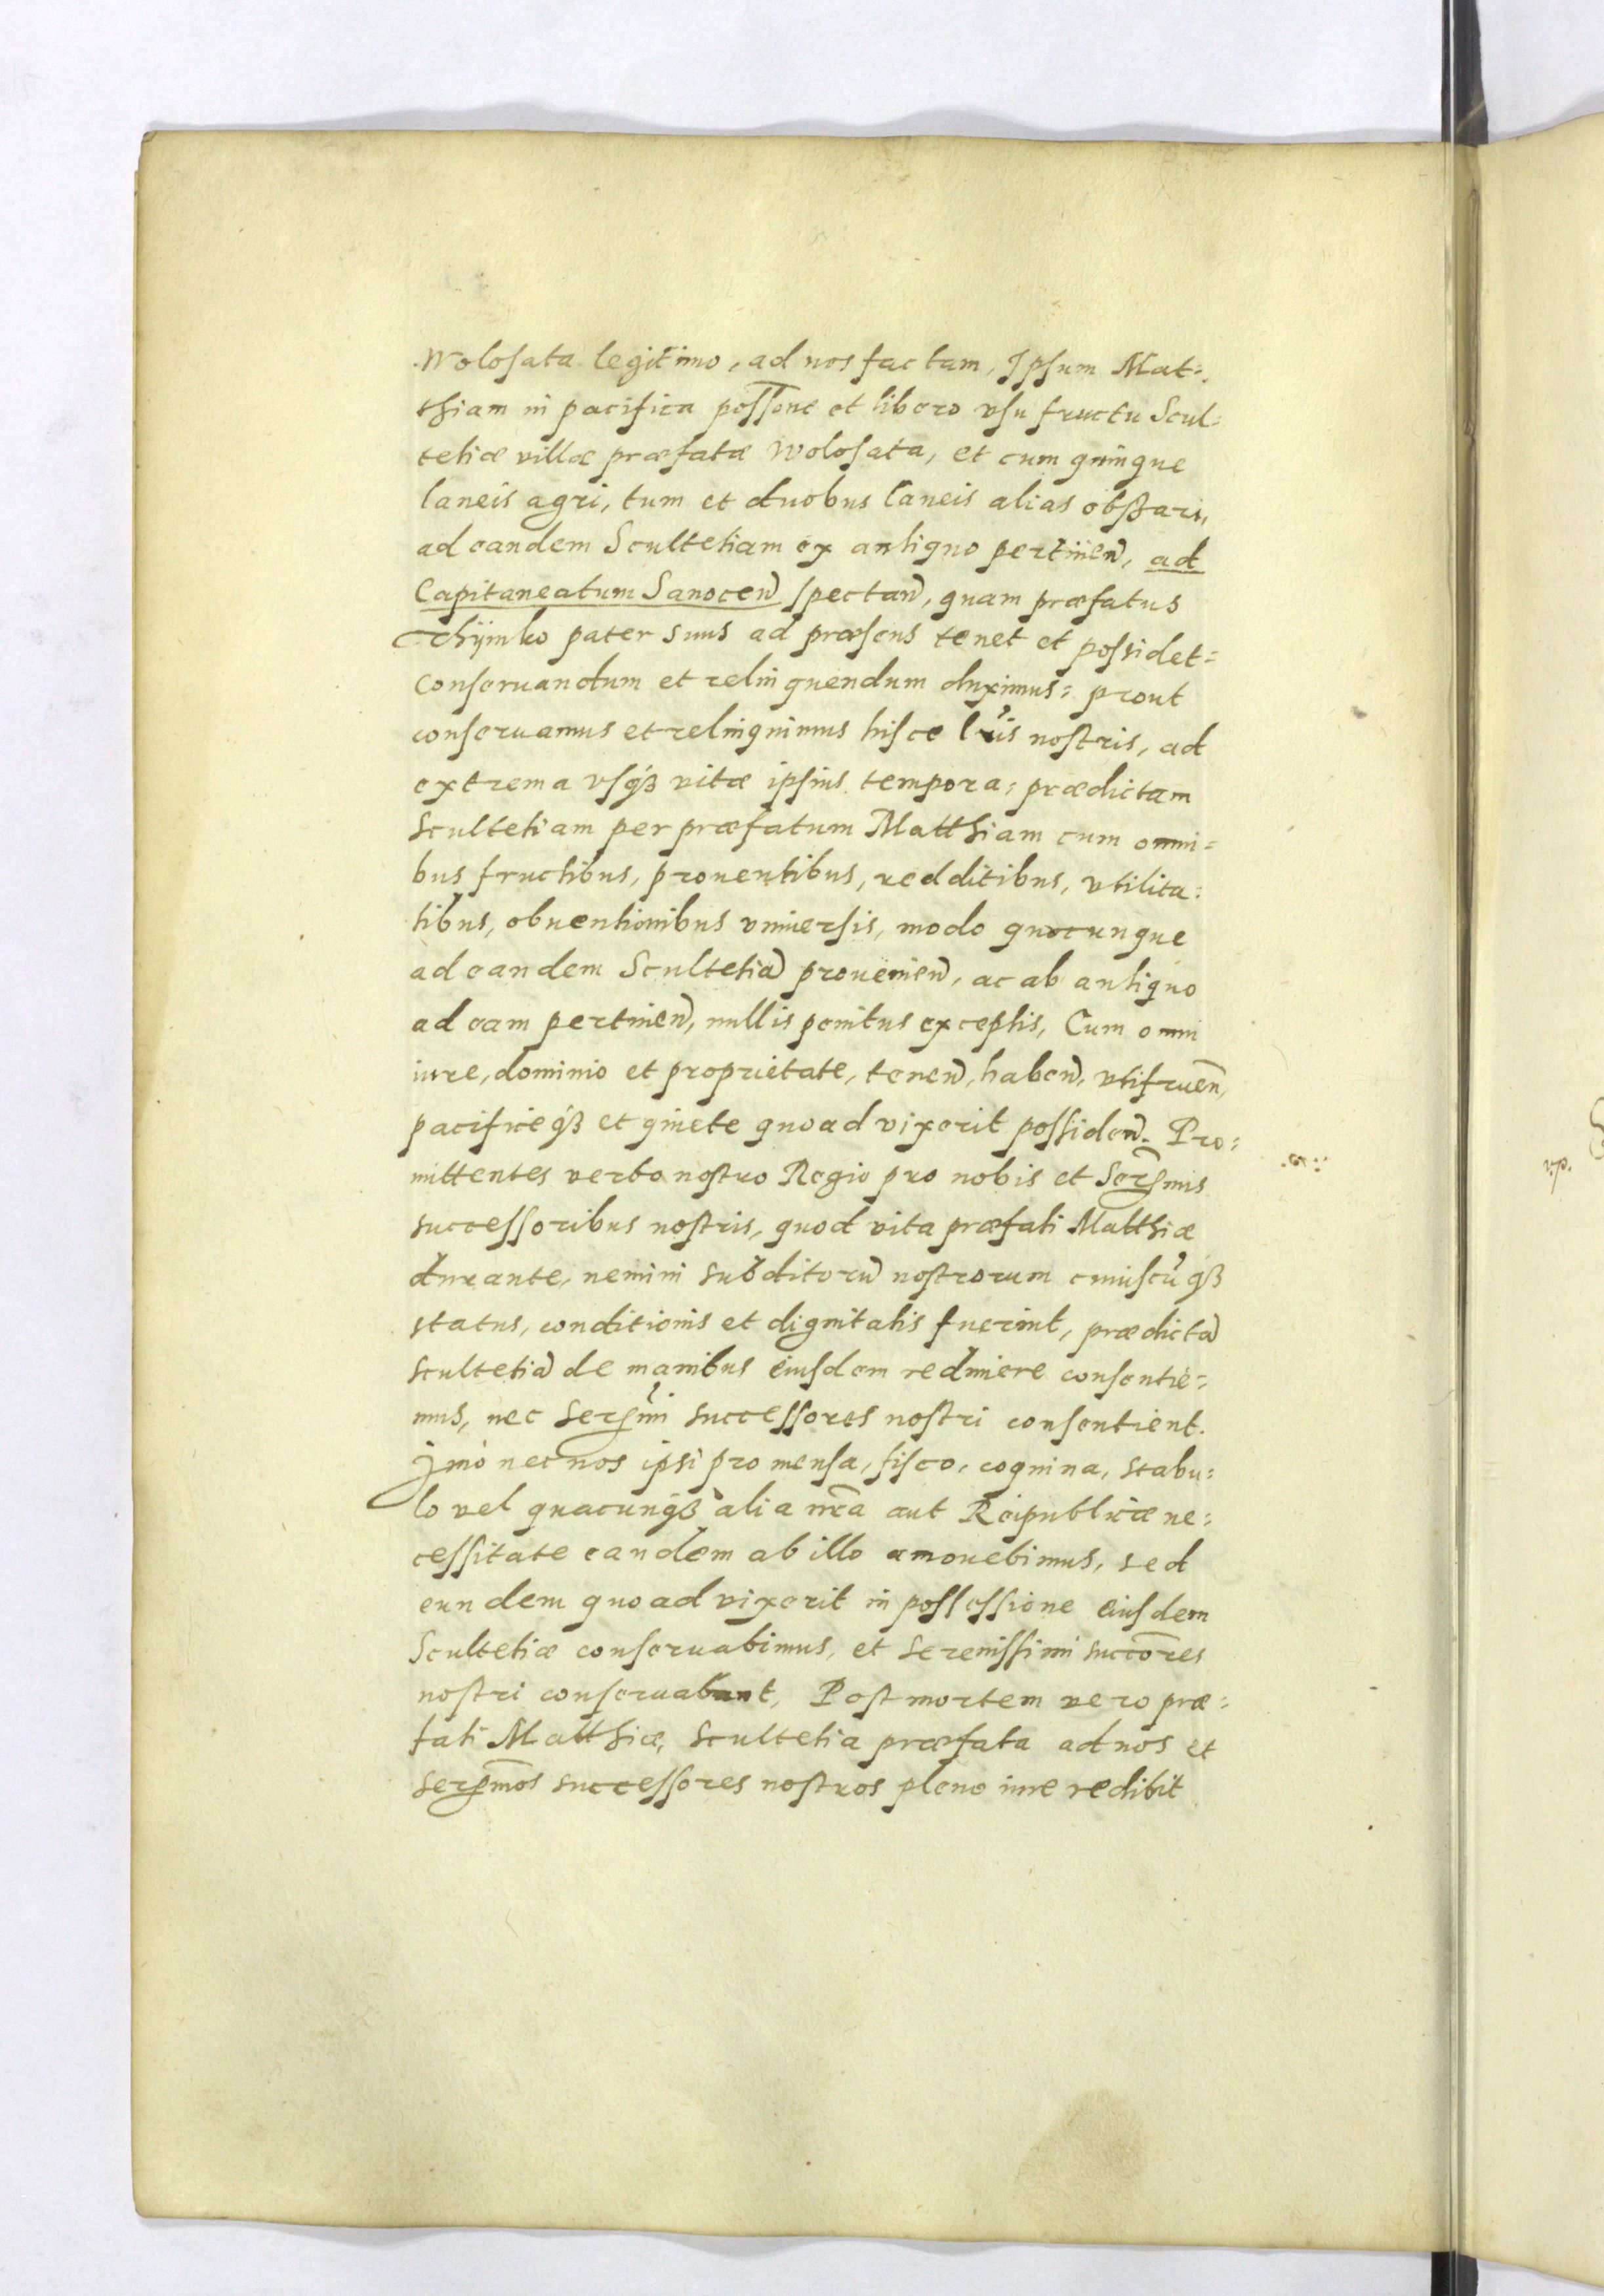 Wolosata legitimo, ad nos factam, Ipsum Mat=
thiam in pacifica possone et libero vsu fructu Scul=
tetiæ villæ præfatæ Wolosata, et cum quinque
laneis agri, tum et duobus laneis alias obszari,
ad eandem Scultetiam ex antiquo pertinen, ad
Capitaneatum Sanocen spectan, quam præfatus
Chijmko pater suus ad præsens tenet et possidet=
conseruandum et relinquendum duximus= prout
conseruamus et relinquimus hisce lris nostris, ad
extrema vsq3 vitæ ipsius tempora= prædictam
Scultetiam per præfatum Matthiam cum omni=
bus fructibus, prouentibus, redditibus, vtilita=
tibus, obuentionibus vniuersis, modo quocunque
ad eandem Scultetiã prouenien, ac ab antiquo
ad eam pertinen, nullis penitus exceptis, Cum omni
iure, dominio et proprietate, tenen, haben, vtifruen,
pacificeq3 et quiete quoad vixerit possiden. Pro=
mittentes verbo nostro Regio pro nobis et Sermis
successoribus nostris, quod vita præfati Matthiæ
durante, nemini subditorũ nostrorum cuiuscũq3
status, conditionis et dignitatis fuerint, prædictã
scultetiã de manibus eiusdem redimere consentie=
mus, nec sermi successores nostri consentient.
Imò nec nos ipsi pro mensa, fisco, coquina, stabu=
lo vel quacunq3 alia nrã aut Reipublicæ ne=
cessitate eandem ab illo amouebimus, sed
eundem quoad vixerit in possessione eiusdem
Scultetiæ conseruabimus, et serenissimi succores
nostri conseruabunt, Post mortem vero præ=
fati Matthiæ, scultetia præfata ad nos et
sermos successores nostros pleno iure redibit
v.p.